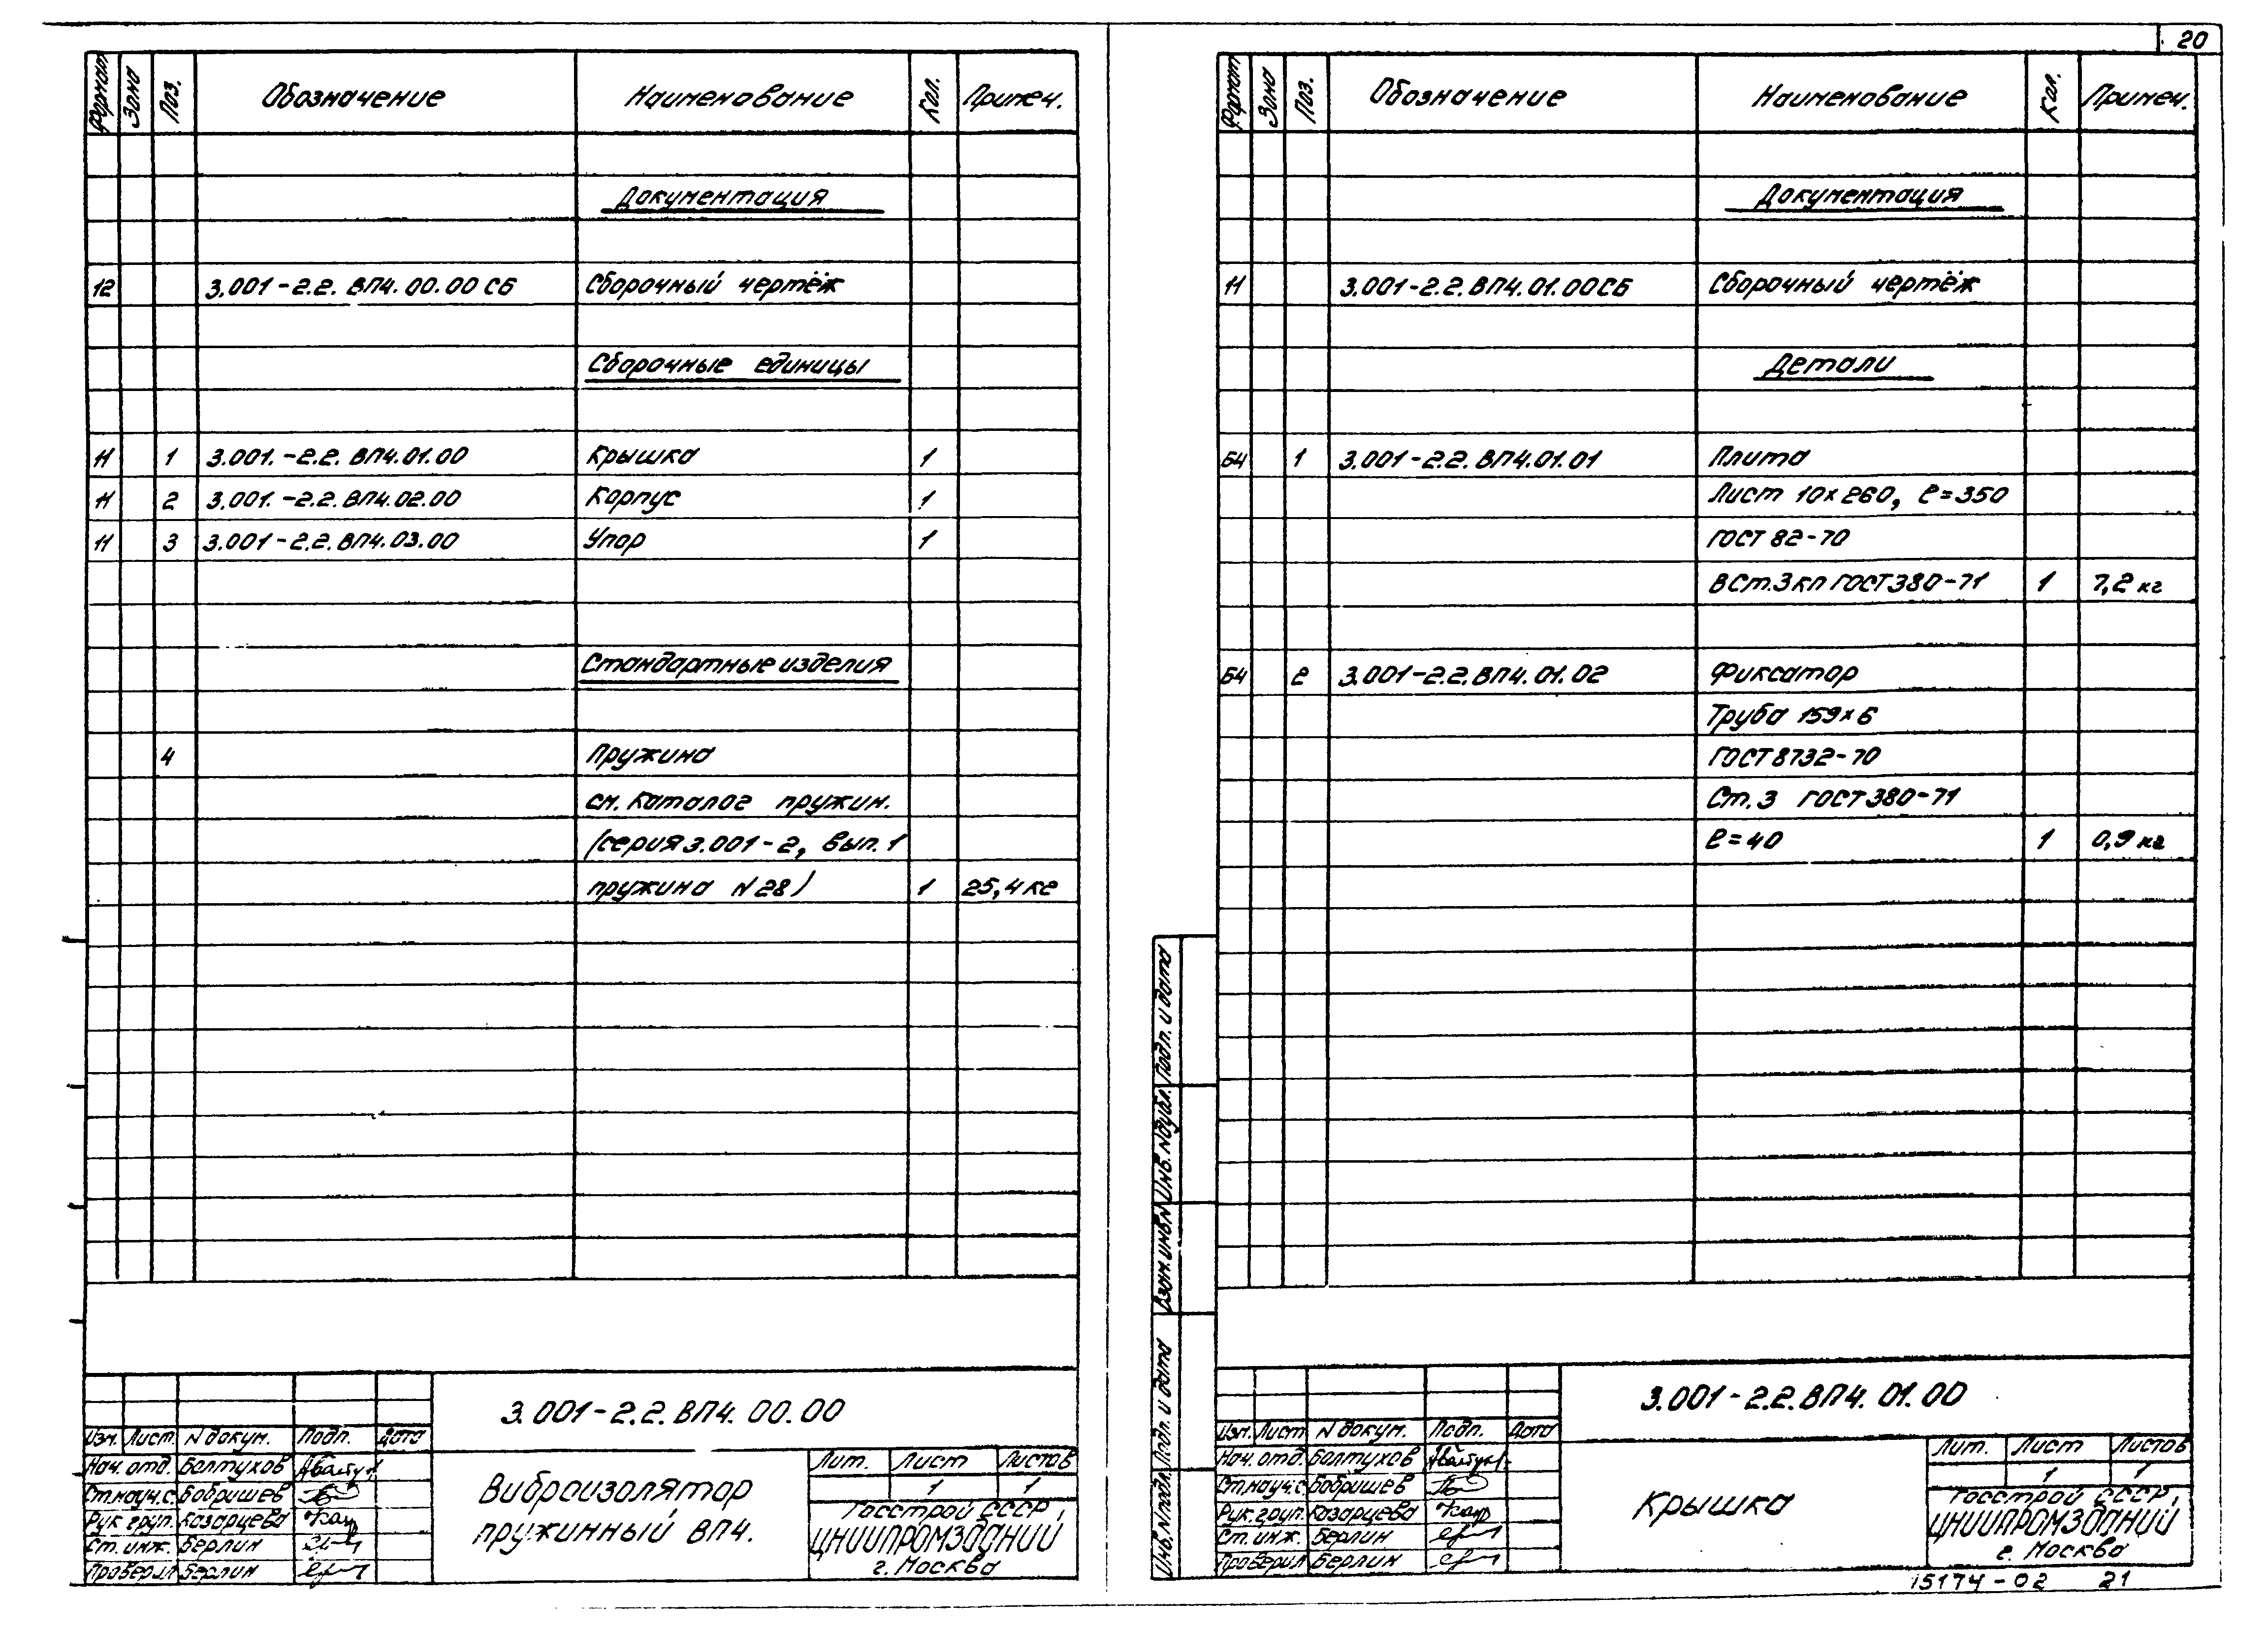 20
Формат Зона Поз. Обозначение Наименование Кол. Примеч.
Документация
12 3.001-2.2. ВП4.00.00 СБ Сборочный чертёж
Сборочные единицы
11 1 3.001.-2.2. ВП4.01.00 Крышка 1
11 2 3.001.-2.2. ВП4.02.00 Корпус 1
11 3 3.001-2.2. ВП4.03.00 Упор 1
Стандартные изделия
4 Пружина
см. каталог пружин.
/серия 3.001-2, вып.1
пружина N28/ 1 25,4 кг
3.001-2.2. ВП4. 00.00
Изм. Лист N докум. Подп. Дата
Нач. отд. Болтухов
Ст.науч.с. Бобришев
Рук. груп. Казарцева
Ст. инж. Берлин
Проверил Берлин
Виброизолятор
пружинный ВП4.
Лит. Лист Листов
1 1
Госстрой СССР,
ЦНИИПРОМЗДАНИЙ
г. Москва
Формат Зона Поз. Обозначение Наименование Кол. Примеч.
Документация
11 3.001-2.2. ВП4.01.00СБ Сборочный чертёж
Детали
Б4 1 3.001-2.2. ВП4.01.01 Плита
Лист 10х260, ℓ=350
ГОСТ 82-70
ВСт.3кп ГОСТ380-71 1 7,2 кг
Б4 2 3.001-2.2. ВП4.01.02 Фиксатор
Труба 159х6
ГОСТ8732-70
Ст.3 ГОСТ380-71
ℓ=40 1 0,9 кг
Подп. и дата
Инв. N дубл.
Взам. инв. N
Подп. и дата
Инв. N подл.
3.001-2.2. ВП4. 01.00
Изм. Лист N докум. Подп. Дата
Нач. отд. Болтухов
Ст.науч.с. Бобришев
Рук. груп. Казарцева
Ст. инж. Берлин
Проверил Берлин
Крышка
Лит. Лист Листов
1 1
Госстрой СССР,
ЦНИИПРОМЗДАНИЙ
г. Москва
15174-02 21